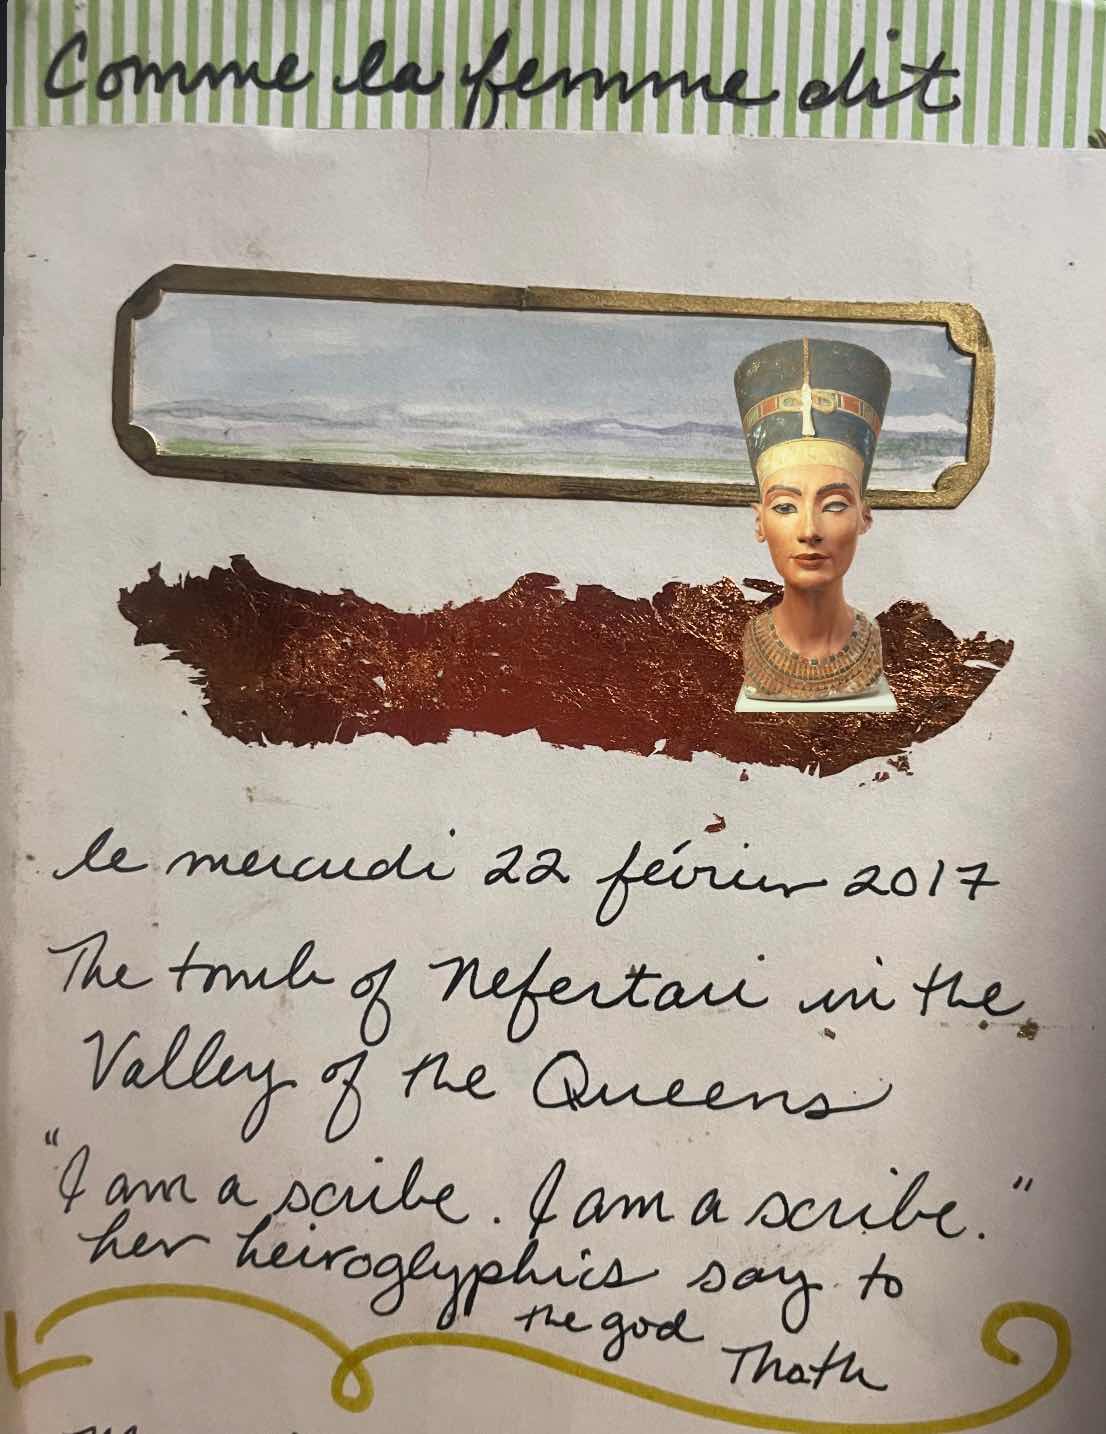 Comme la femme dit
le mercredi 22 février 2017
The tomb of Nefertari in the
Valley of the Queens
"I am a scribe. I am a scribe."
her heiroglyphics say to
the god
Thoth